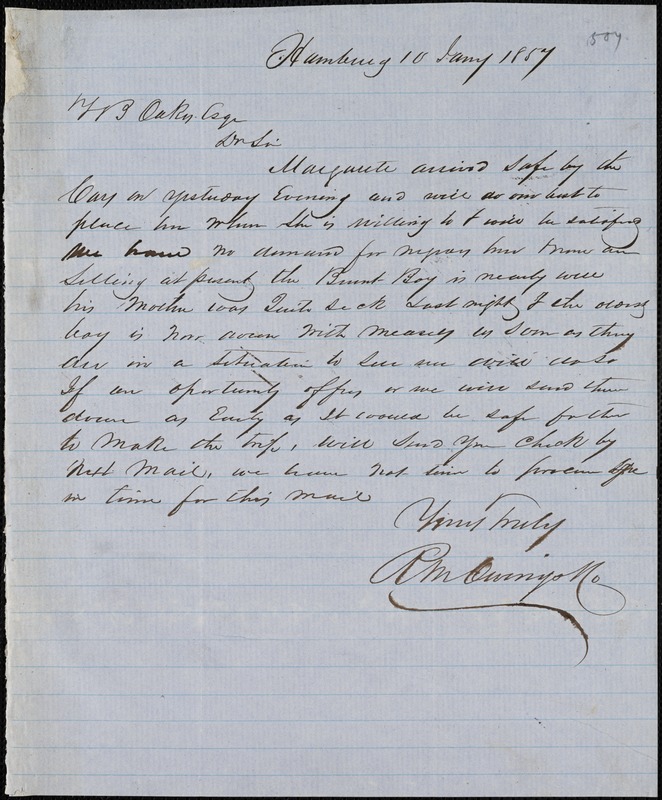 507.
Hamburg 10 Jany 1857
Z B Oakes Esqr
Dr Sir
Margarete arrived safe by the
Cars on yesterday Evening and will do our best to
place her when She is willing to & will be satisfied
we have no demand for negroes here & none are
Selling at present, the Burnt Boy is nearly well
his Mother was Quite sick Last night & the
boy is now down with measels as Soon as they
are in a Situation to See we will do So
If an oportunity offers or we will send them
down as Early as it would be safe for them
to make the trip, will Send you check by
Next Mail, we have not time to procure
in time for this mail
Yours Truly
R M Owings & Co